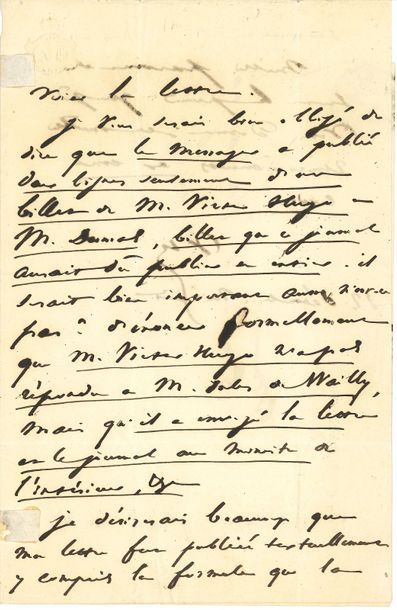 Voici la lettre.
je vous serais bien obligé de
dire que le Messager a publié
deux lignes seulement d'un
billet de M. Victor Hugo à
M. Dumas, billet que ce journal
aurait dû publier en entier. il
serait bien important aussi, n'est-ce
pas? d'énoncer formellement
que M. Victor Hugo n'a pas
répondu à M. Jules de Wailly,
mais qu'il a envoyé la lettre
et le journal au ministre de
l'intérieur,
je désirerais beaucoup que
ma lettre fût publiée textuellement
y compris la formule que la